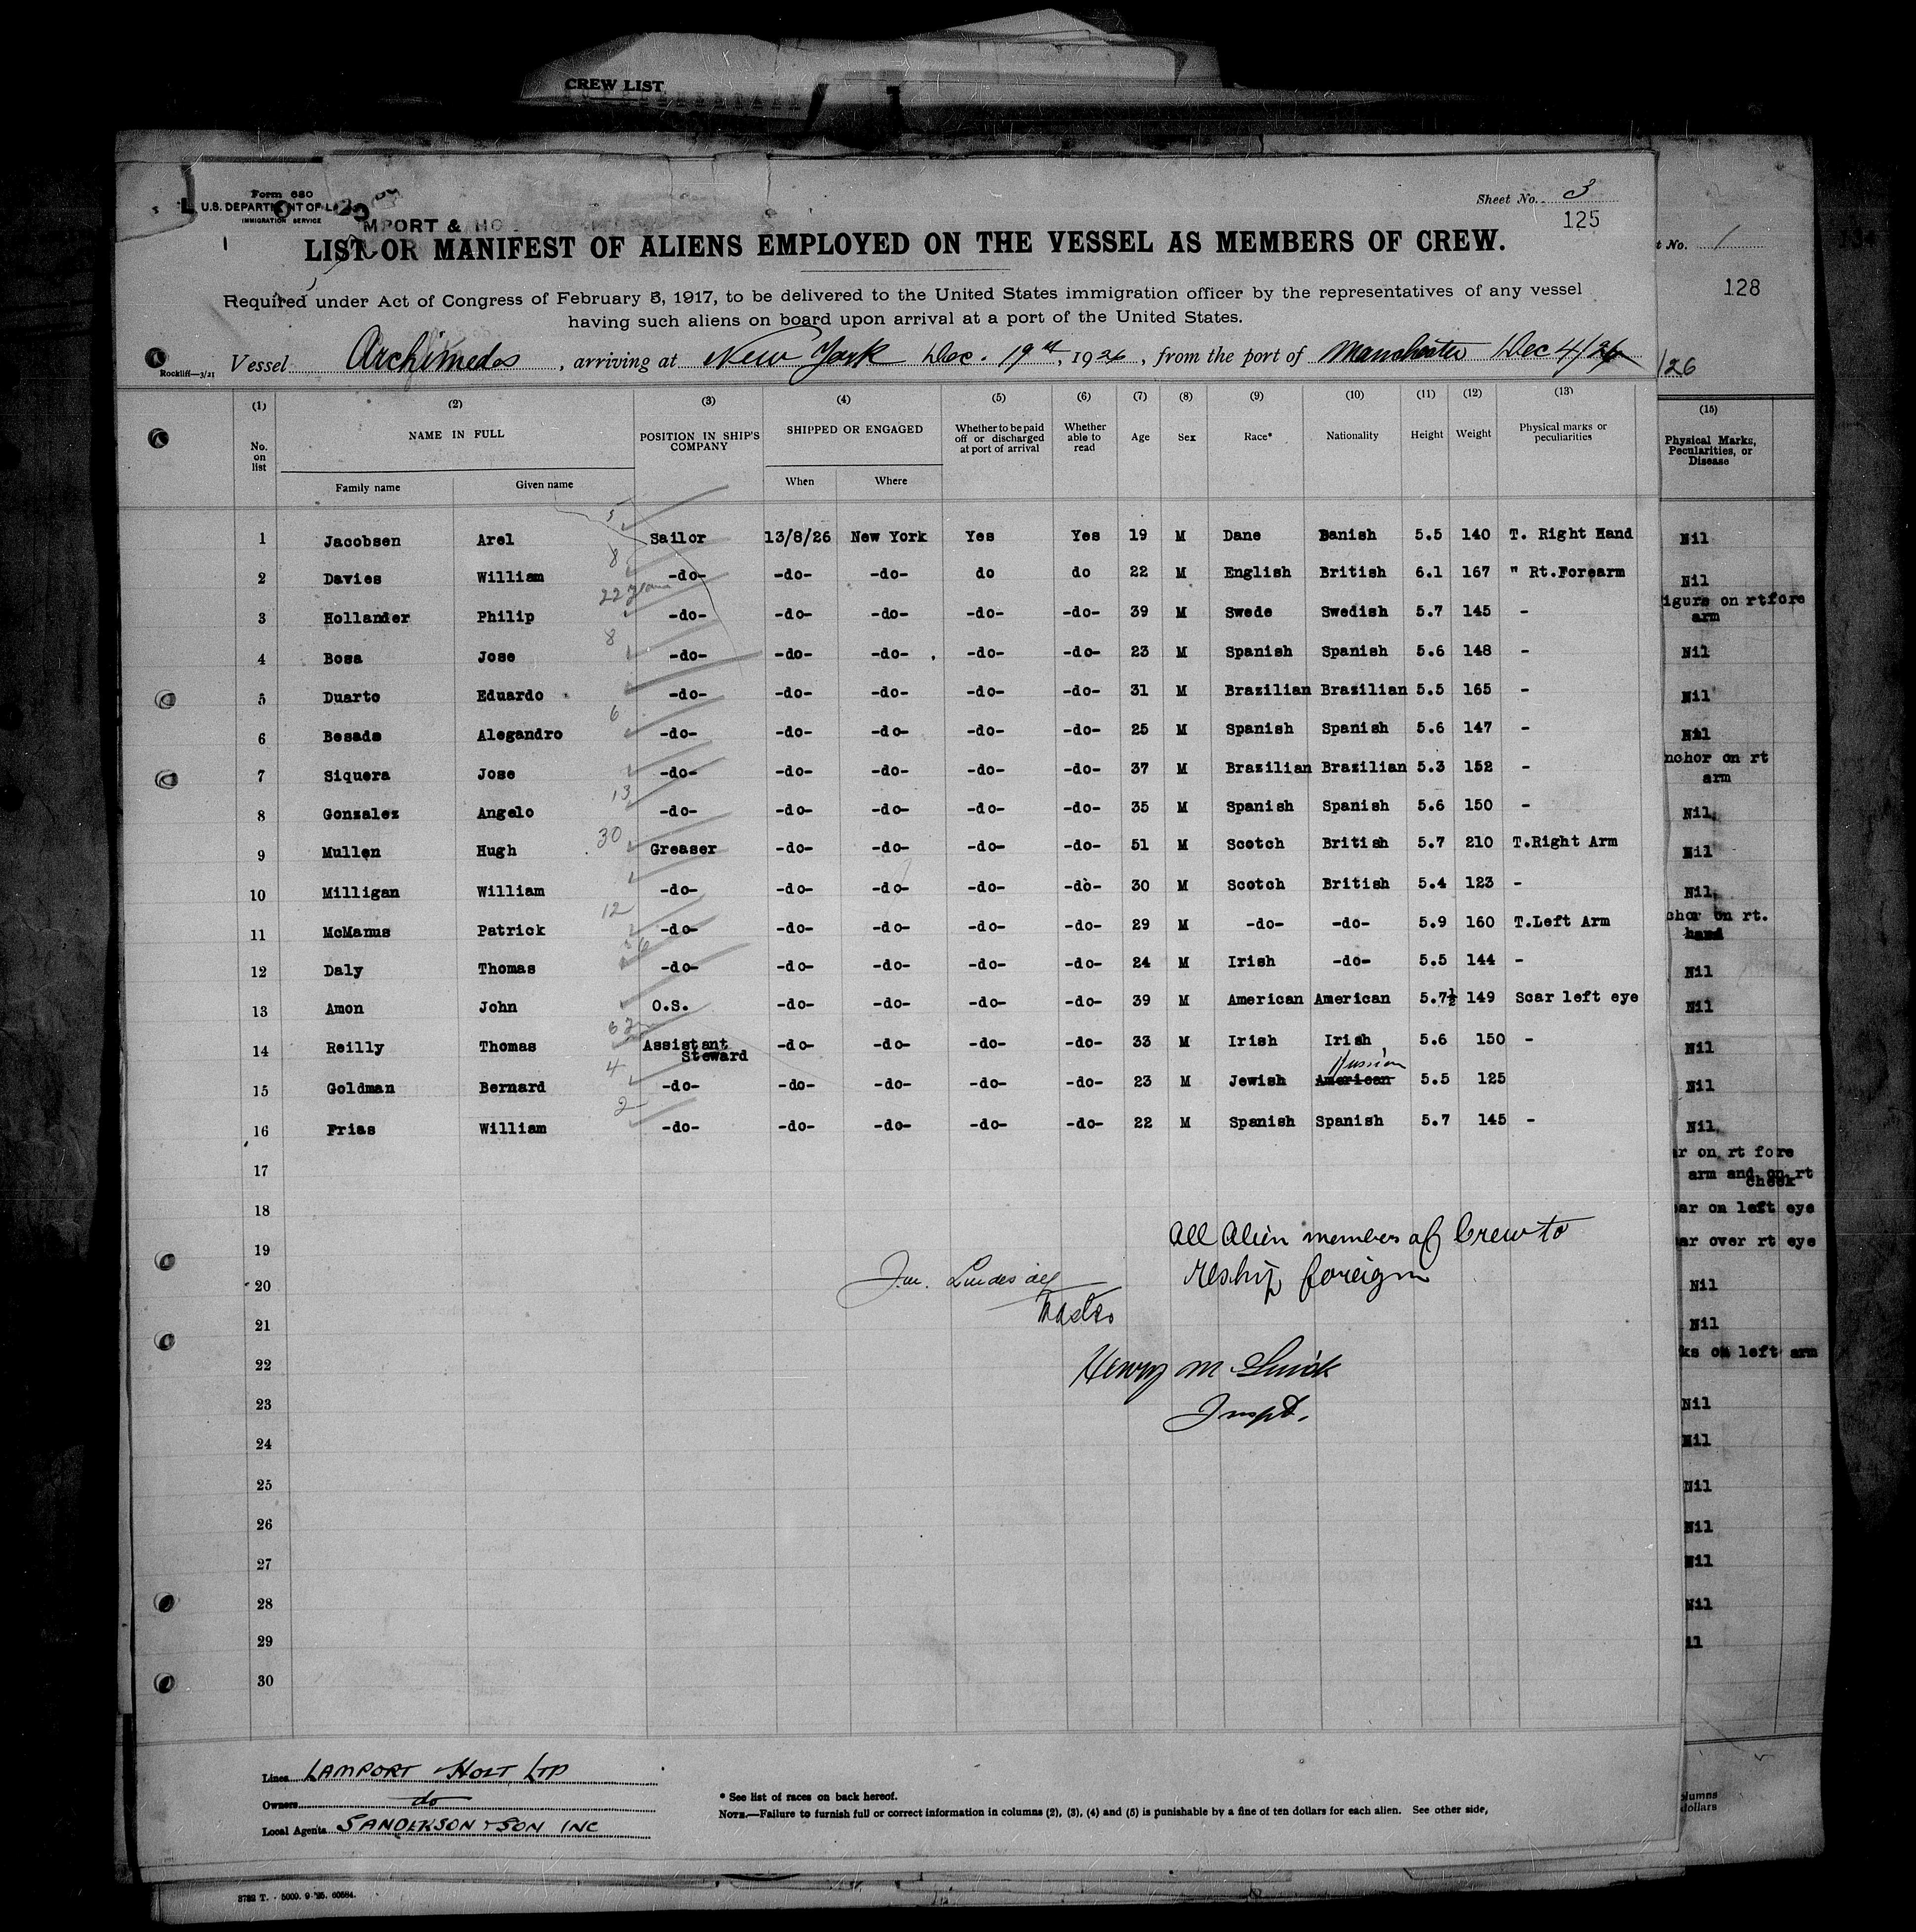 CREW LIST
Form 680
U.S. DEPARTMENT OF L
IMMIGRATION SERVICE
MPORT & HO
Sheet No. 3
125
LIST OR MANIFEST OF ALIENS EMPLOYED ON THE VESSEL AS MEMBERS OF CREW.
Required under Act of Congress of February 5, 1917, to be delivered to the United States immigration officer by the representatives of any vessel
having such aliens on board upon arrival at a port of the United States.
Vessel Archimedes, arriving at New York Dec. 19th, 1926, from the port of Manchester Dec 4/26
Rockliff—3/21
(1) (2) (3) (4) (5) (6) (7) (8) (9) (10) (11) (12) (13)
No. on list NAME IN FULL POSITION IN SHIP'S COMPANY SHIPPED OR ENGAGED Whether to be paid off or discharged at port of arrival Whether able to read Age Sex Race* Nationality Height Weight Physical marks or peculiarities
Family name Given name When Where
1 Jacobsen Arel 5 Sailor 13/8/26 New York Yes Yes 19 M Dane Danish 5.5 140 T. Right Hand
2 Davies William 8 -do- -do- -do- do do 22 M English British 6.1 167 " Rt.Forearm
3 Hollander Philip 22 years -do- -do- -do- -do- -do- 39 M Swede Swedish 5.7 145 -
4 Bosa Jose 8 -do- -do- -do- -do- -do- 23 M Spanish Spanish 5.6 148 -
5 Duarto Eduardo -do- -do- -do- -do- -do- 31 M Brazilian Brazilian 5.5 165 -
6 Besada Alegandro 6 -do- -do- -do- -do- -do- 25 M Spanish Spanish 5.6 147 -
7 Siquera Jose -do- -do- -do- -do- -do- 37 M Brazilian Brazilian 5.3 152 -
8 Gonzalez Angelo 13 -do- -do- -do- -do- -do- 35 M Spanish Spanish 5.6 150 -
9 Mullen Hugh 30 Greaser -do- -do- -do- -do- 51 M Scotch British 5.7 210 T.Right Arm
10 Milligan William -do- -do- -do- -do- -do- 30 M Scotch British 5.4 123 -
11 McManus Patrick 12 -do- -do- -do- -do- -do- 29 M -do- -do- 5.9 160 T.Left Arm
12 Daly Thomas -do- -do- -do- -do- -do- 24 M Irish -do- 5.5 144 -
13 Amon John O.S. -do- -do- -do- -do- 39 M American American 5.7½ 149 Scar left eye
14 Reilly Thomas Assistant Steward -do- -do- -do- -do- 33 M Irish Irish 5.6 150 -
15 Goldman Bernard 4 -do- -do- -do- -do- -do- 23 M Jewish American Russian 5.5 125
16 Frias William 2 -do- -do- -do- -do- -do- 22 M Spanish Spanish 5.7 145 -
17
18
19
20
21
22
23
24
25
26
27
28
29
30
All Alien members of Crew to
reship foreign
Master
Henry M
Inspt.
Lines LAMPORT & HOLT LTD
Owners do
Local Agents SANDERSON & SON INC
* See list of races on back hereof.
NOTE.—Failure to furnish full or correct information in columns (2), (3), (4) and (5) is punishable by a fine of ten dollars for each alien. See other side,
3782 T. - 5000. 9-'25. 60584.
t No. 1
128
/26
(15)
Physical Marks,
Pecularities, or
Disease
Nil
Nil
igure on rtfore
arm
Nil
Nil
Nil
nchor on rt
arm
Nil
Nil
Nil
chor on rt.
hand
Nil
Nil
Nil
Nil
Nil
ar on rt fore
arm and on rt
cheek
ar on left eye
ar over rt eye
Nil
Nil
ks on left arm
Nil
Nil
Nil
Nil
Nil
Nil
il
olumns
dollars